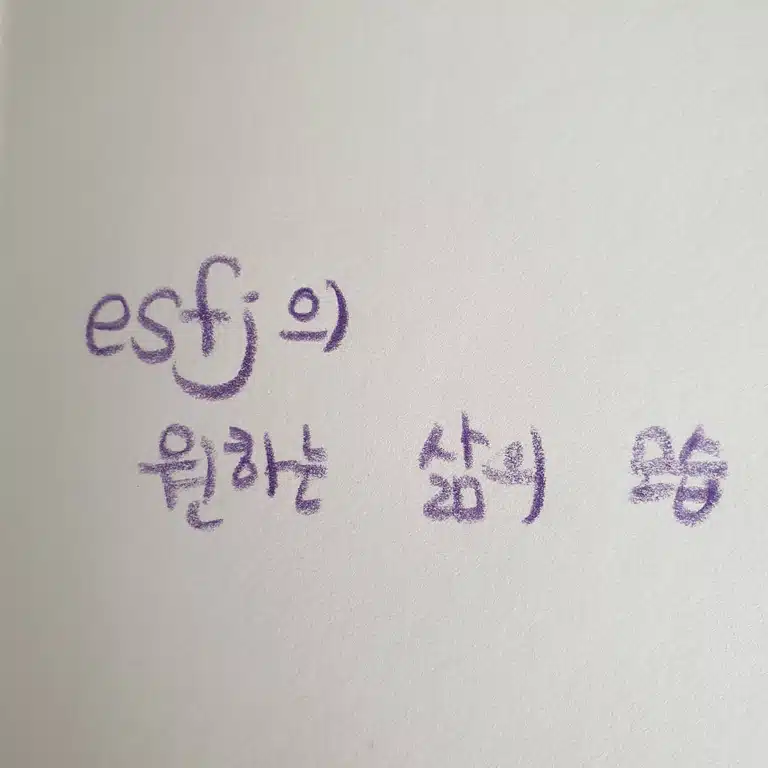 esfj의
원하는 삶의 모습